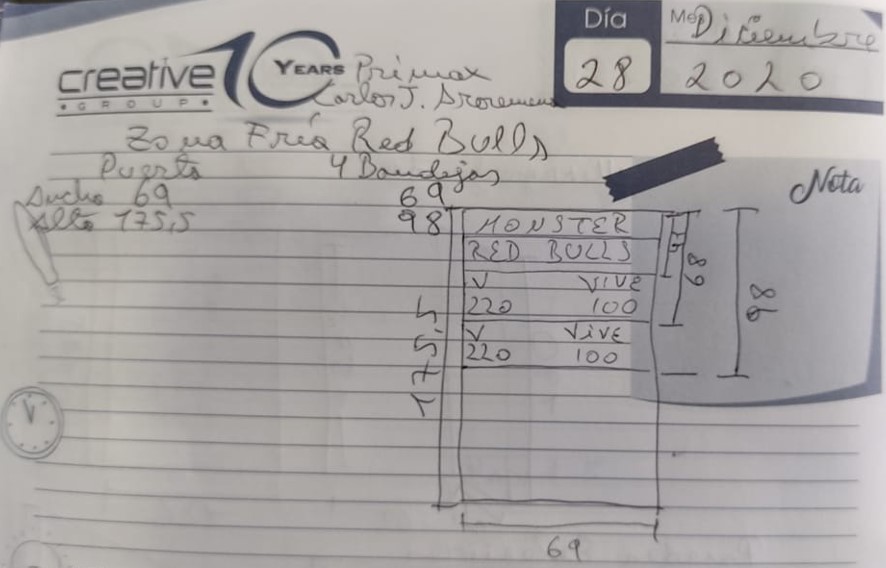 creative 10 YEARS
GROUP
Día 28
Mes Diciembre
2020
Primax
Carlos J.
Zona Fría Red Bulls
Puerta 4 Bandejas
Ancho 69
Alto 175,5
69
98
Nota
MONSTER
RED BULLS
V VIVE
220 100
V VIVE
220 100
68
98
175,5
69